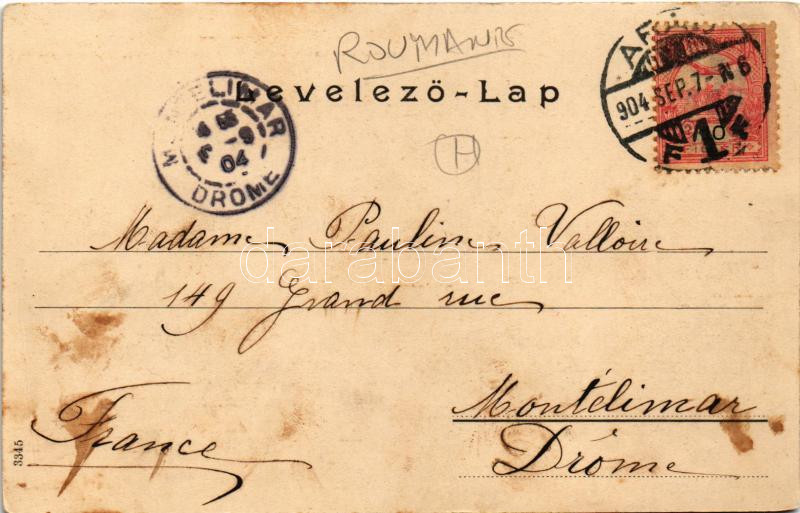 ROUMANIE
Levelező-Lap
MONTELIMAR
9
04
DROME
904 SEP. 7 - N 6
10
H
Madame Pauline Valloire
149 Grand rue
Montélimar
Drôme
France
3345
darabanth